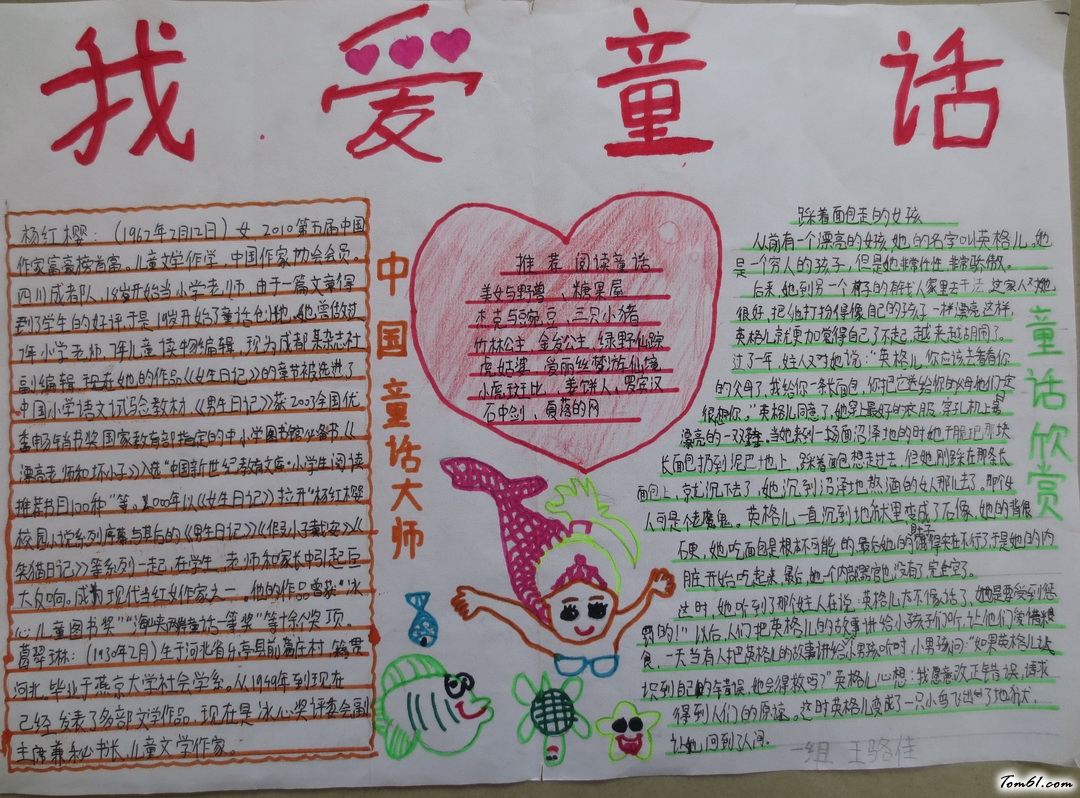 我爱童话
杨红樱：（1962年2月12日）女 2010第五届中国
作家富豪榜首富。儿童文学作家，中国作家协会会员。
四川成都人，18岁开始当小学老师，由于一篇文章得
到了学生的好评，于是19岁开始了童话创作。她曾做过
7年小学老师，7年儿童读物编辑，现为成都某杂志社
副编辑 现在她的作品《女生日记》的章节被选进了
中国小学语文试验教材，《男生日记》获2003全国优
秀畅销书奖 国家教育部指定的中小学图书馆必备书《
漂亮老师和坏小子》入选"中国新世纪教育文库·小学生阅读
推荐书目100种"等。2000年以《女生日记》拉开"杨红樱
校园小说系列序幕与其后的《男生日记》《假小子戴安》《
笑猫日记》等系列一起，在学生、老师和家长中引起巨
大反响。成为现代当红女作家之一。他的作品曾获"冰
心儿童图书奖""海峡两岸童话一等奖"等十余个奖项.
葛翠琳：（1930年2月）生于河北省乐亭县前葛庄村 籍贯
河北，毕业于燕京大学社会学系。从1949年到现在
已经发表了多部文学作品，现在是 冰心奖评委会副
主席兼秘书长、儿童文学作家。
中国童话大师
推荐阅读童话
美女与野兽、糖果屋
杰克与豌豆、三只小猪
竹林公主、金发公主、绿野仙踪
虎姑婆、爱丽丝梦游仙境
小鹿斑比、姜饼人、男宝汉
石中剑、夏洛的网
童话欣赏
踩着面包走的女孩
从前有一个漂亮的女孩，她的名字叫英格儿。她
是一个穷人的孩子，但是她非常任性、非常骄傲。
后来，她到另一个村子的有钱人家里去干活，这家人对她
很好，把他打扮得像自己的孩子一样漂亮，这样
英格儿就更加觉得自己了不起，越来越胡闹了。
过了一年，女主人对她说："英格儿，你应该去看看你
的父母了，我给你一条长面包，你把它带给你的父母，他们一定
很想你。"英格儿同意了，她穿上最好的衣服，穿
漂亮的一双鞋，当她来到一块
长面包扔到泥巴地上，踩着面包想走过去，但她刚踩在那条长
面包上，就沉下去了，她沉到沼泽地熬酒的女人那儿去了。那个女
人可是个老魔鬼。英格儿一直沉到地狱里变成了石像，她的背很
石更，她吃面包是根本不可能的，最后她的
脏开始吃起来，最后，她一个内部器官也没有了，完全空了。
这时，她听到了那个女主人在说：英格儿太不像话了，她是要受到惩
罚的！"以后人们把英格儿的故事讲给小孩子们听，让他们爱惜粮
食，一天当有人把英格儿的故事讲给小男孩听时，小男孩问："如果英格儿认
识到自己的错误，她会得救吗？"英格儿心想：我愿意改正错误，请求
得到人们的原谅。这时英格儿变成了一只小鸟飞出了地狱，
让她回到了人间。
一组 王骆佳
Tom61.com